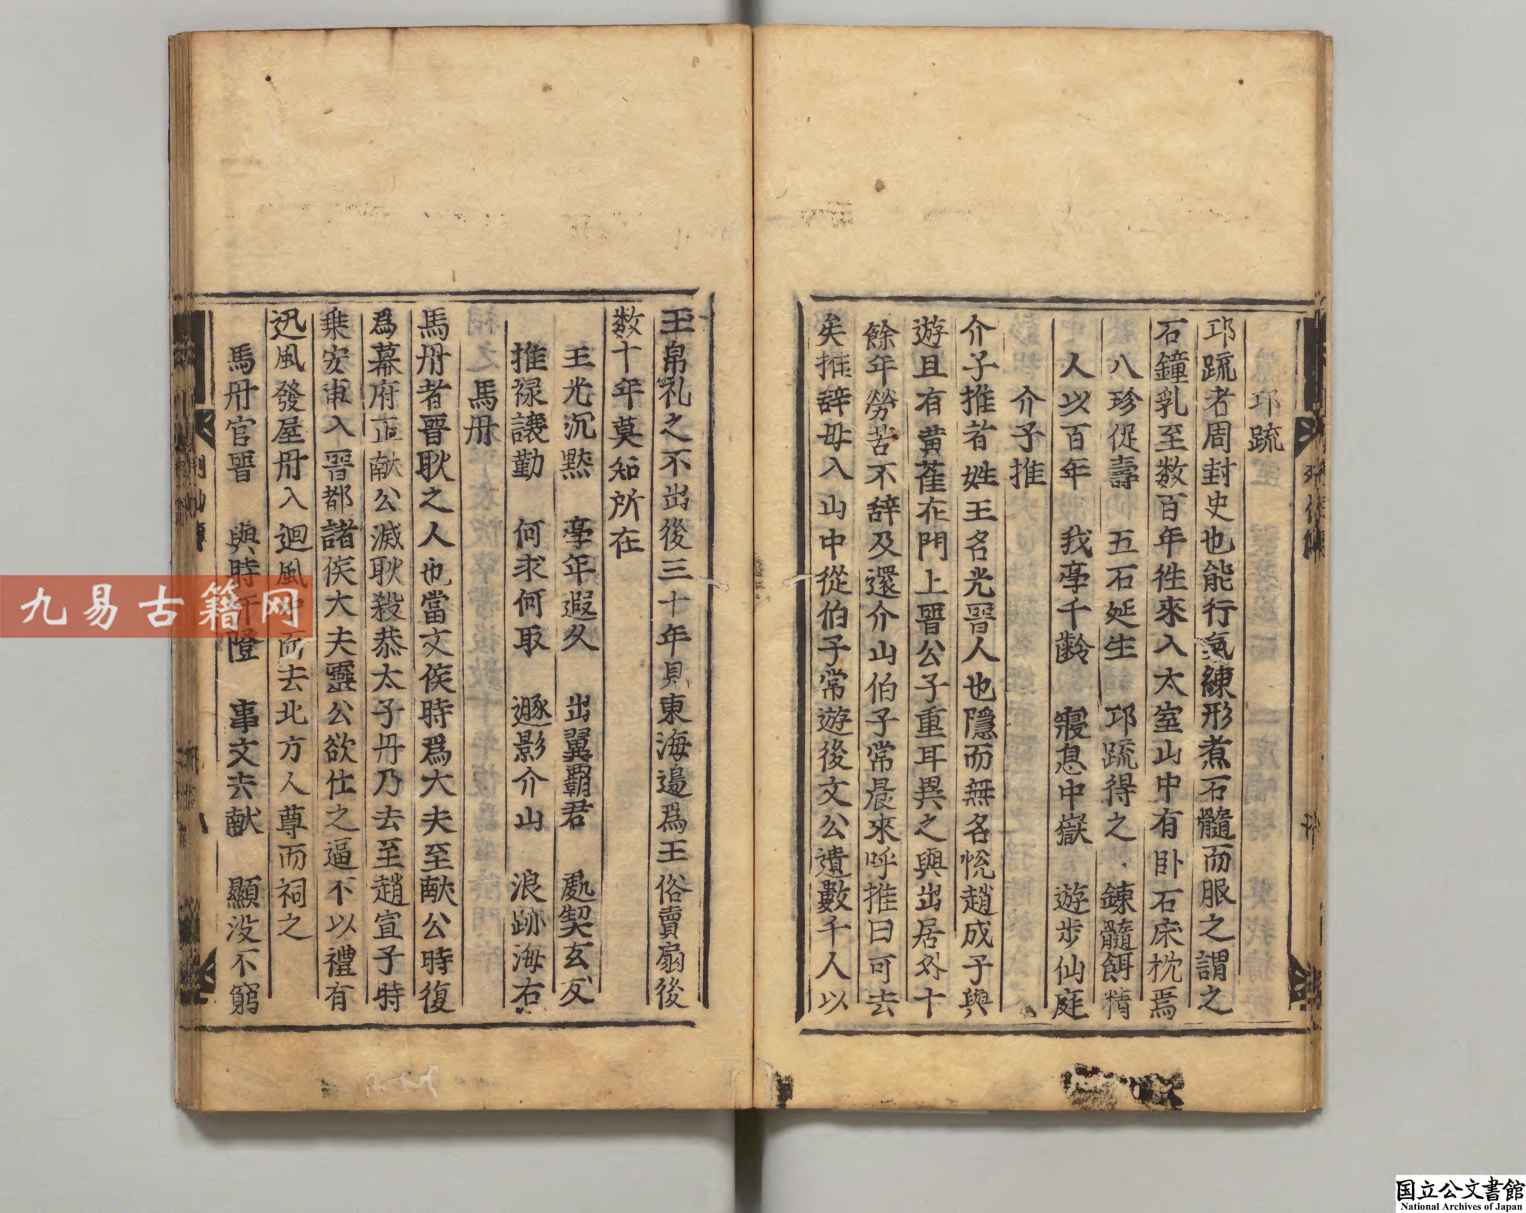 邛疏
邛疏者周封史也能行氣練形煮石髓而服之謂之
石鐘乳至数百年徃來入太室山中有卧石床枕焉
八珍促壽 五石延生 邛疏得之 鍊髓餌精
人以百年 我享千齡 寢息中嶽 遊步仙庭
介子推
介子推者姓王名光晋人也隱而無名恱趙成子與
遊且有黄雀在門上晋公子重耳異之與出居外十
餘年勞苦不辞及還介山伯子常晨來呼推曰可去
矣推辞母入山中從伯子常遊後文公遺數千人以
玉帛礼之不出後三十年見東海邉爲王俗賣扇後
数十年莫知所在
王光沉黙 享年遐久 出翼霸君 處契玄友
推禄讓勤 何求何取 遯影介山 浪跡海右
馬丹
馬丹者晋耿之人也當文侯時爲大夫至献公時復
爲幕府正献公滅耿殺恭太子丹乃去至趙宣子時
乗安車入晋都諸侯大夫靈公欲仕之逼不以禮有
迅風發屋丹入迴風中而去北方人尊而祠之
馬丹官晋 與時汙隆 事文去献 顯没不窮
九易古籍网
国立公文書館
National Archives of Japan